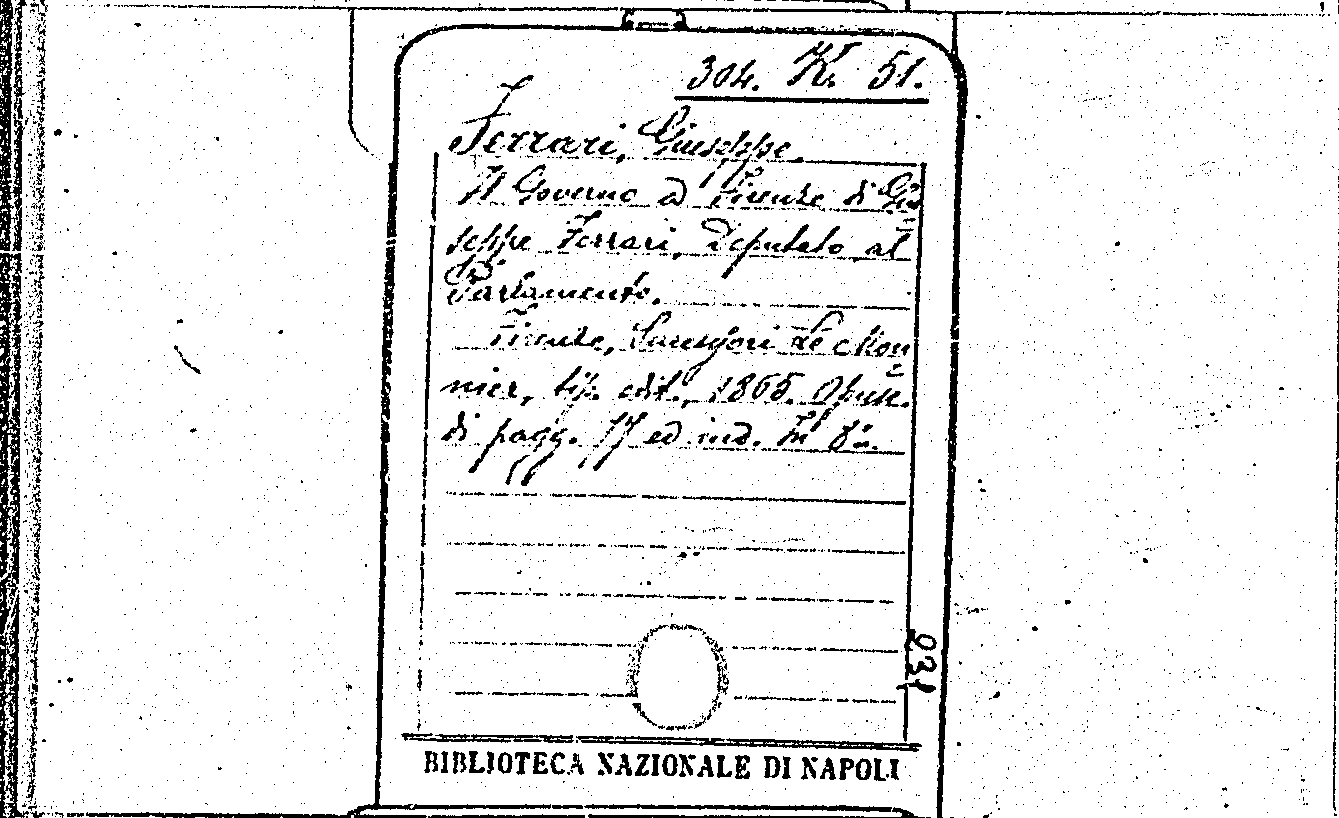 304. K. 51.
Ferrari, Giuseppe.
Il Governo a Firenze di Giu=
seppe Ferrari, Deputato al
Parlamento.
Firenze, Successori Le Mon=
nier, tip. edit., 1865. Opusc.
di pagg. 77 ed ind. In 8º.
231
BIBLIOTECA NAZIONALE DI NAPOLI